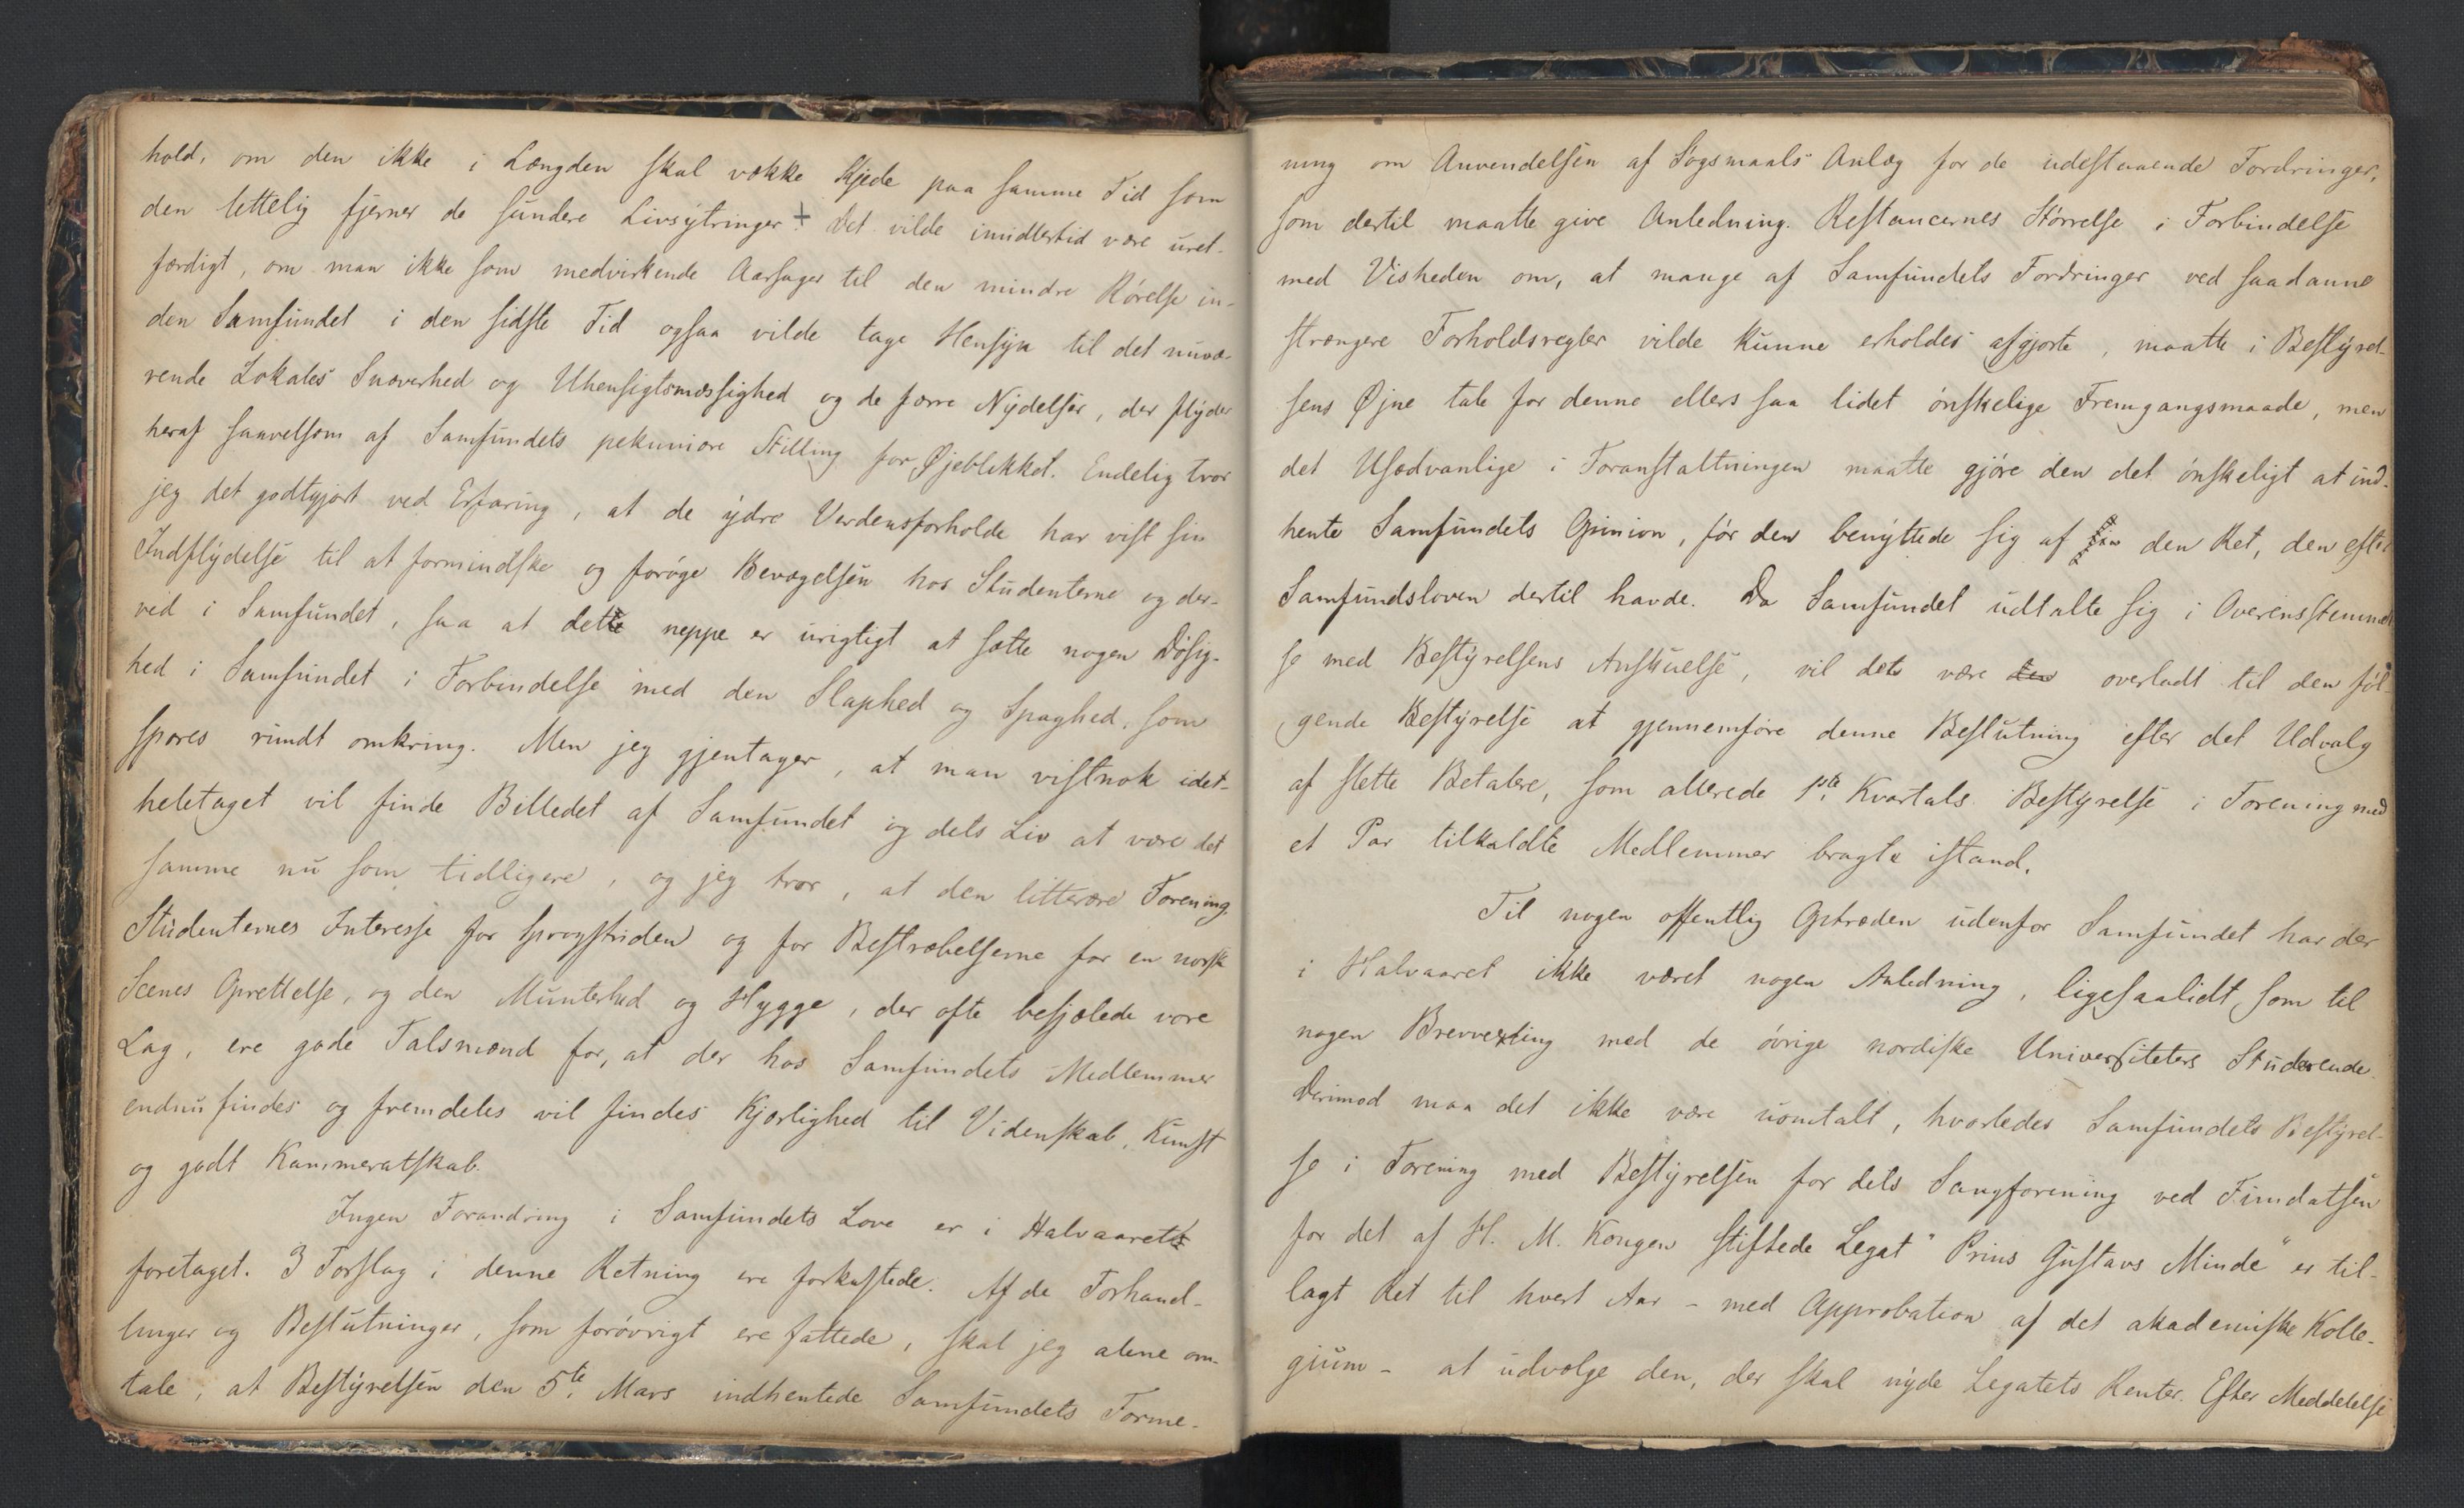 hold, om den ikke i Længden skal vække Kjede paa samme Tid som
den lettelig fjerner de sundere Livsytringer + Det vilde imidlertid være uret-
færdigt, om man ikke som medvirkende Aarsager til den mindre Rörelse in-
den Samfundet i den sidste Tid ogsaa vilde tage Hensyn til det nuvæ-
rende Lokales Snæverhed og Uhensigtsmæssighed og de færre Nydelser, der flyder
heraf saavelsom af Samfundets pekuniære Stilling for Øjeblikket. Endelig tror
jeg det godtgjort ved Erfaring, at de ydre Verdensforholde har vist sin
Indflydelse til at formindske og foröge Bevægelsen hos Studenterne og der-
ved i Samfundet, saa at dette neppe er urigtigt at sætte nogen Dösig-
hed i Samfundet i Forbindelse med den Slaphed og Spaghed, som
spores rundt omkring. Men jeg gjentager, at man vistnok idet-
heletaget vil finde Billedet af Samfundet og dets Liv at være det
samme nu som tidligere, og jeg tror, at den litterære Forening
Studenternes Interesse for Sprogstriden og for Bestræbelserne for en norsk
Scenes Oprettelse, og den Munterhed og Hygge, der ofte besjælede vore
Lag, ere gode Talsmænd for, at der hos Samfundets Medlemmer
endnu findes og fremdeles vil findes Kjærlighed til Videnskab, Kunst
og godt Kammeratskab.
Ingen Forandring i Samfundets Love er i Halvaaret
foretaget. 3 Forslag i denne Retning ere forkastede. Af de Forhand-
linger og Beslutninger, som forövrigt ere fattede, skal jeg alene om-
tale, at Bestyrelsen den 5te. Mars indhentede Samfundets Forme-
ning om Anvendelsen af Sögsmaals Anlæg for de udestaaende Fordringer,
som dertil maatte give Anledning. Restancernes Störrelse i Forbindelse
med Visheden om, at mange af Samfundets Fordringer ved saadanne
strængere Forholdsregler vilde kunne erholdes afgjorte, maatte i Bestyrel-
sens Øjne tale for denne ellers saa lidet önskelige Fremgangsmaade, men
det Usædvanlige i Foranstaltningen maatte gjöre den det önskeligt at ind-
hente Samfundets Opinion, för den benyttede sig af sin den Ret, den efter
Samfundsloven dertil havde. Da Samfundet udtalte sig i Overensstemmel
se med Bestyrelsens Anskuelse, vil det være den overladt til den föl-
gende Bestyrelse at gjennemföre denne Beslutning efter det Udvalg
af slette Betalere, som allerede 1ste. Kvartals Bestyrelse i Forening med
et Par tilkaldte Medlemmer bragte istand.
Til nogen offentlig Optræden udenfor Samfundet har der
i Halvaaret ikke været nogen Anledning, ligesaalidt som til
nogen Brevvexling med de övrige nordiske Universiteters Studerende.
Derimod maa det ikke være uomtalt, hvorledes Samfundets Bestyrel-
se i Forening med Bestyrelsen for dets Sangforening ved Fundatsen
for det af H. M. Kongen stiftede Legat "Prins Gustavs Minde" er til-
lagt Ret til hvert Aar - med Approbation af det akademiske Kolle-
gium - at udvælge den, der skal nyde Legatets Renter. Efter Meddelelse